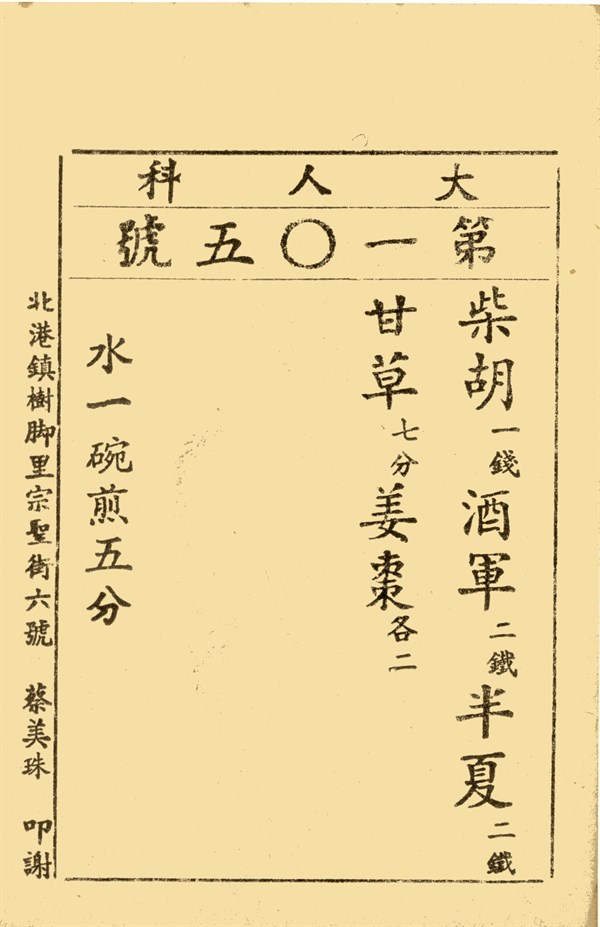 大人科
第一〇五號
柴胡一錢酒軍二鐵半夏二鐵
甘草七分姜棗各二
水一碗煎五分
北港鎮樹脚里宗聖街六號　蔡美珠　叩謝